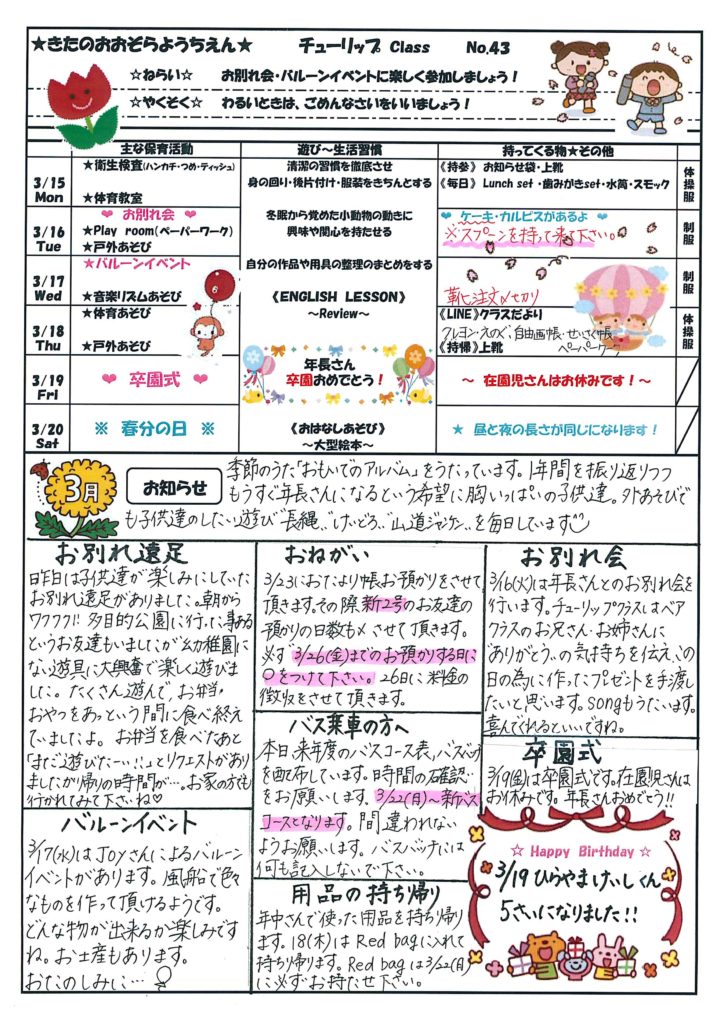 ★きたのおおぞらようちえん★ チューリップ Class No.43
☆ねらい☆ お別れ会・バルーンイベントに楽しく参加しましょう！
☆やくそく☆ わるいときは、ごめんなさいをいいましょう！
主な保育活動 遊び～生活習慣 持ってくる物★その他
3/15 Mon
★衛生検査(ハンカチ・つめ・ティッシュ)
★体育教室
清潔の習慣を徹底させ
身の回り・後片付け・服装をきちんとする
《持参》 お知らせ袋・上靴
《毎日》 Lunch set・歯みがきset・水筒・スモック
体操服
3/16 Tue
❤ お別れ会 ❤
★Play room(ペーパーワーク)
★戸外あそび
冬眠から覚めた小動物の動きに
興味や関心を持たせる
❤ ケーキ・カルピスがあるよ ❤
※スプーンを持って来て下さい。
制服
3/17 Wed
★バルーンイベント
★音楽リズムあそび
自分の作品や用具の整理のまとめをする
《ENGLISH LESSON》
～Review～
靴注文〆切り
制服
3/18 Thu
★体育あそび
★戸外あそび
《LINE》クラスだより
クレヨン・えのぐ・自由画帳・せいさく帳
《持帰》上靴 ペーパーワーク
体操服
3/19 Fri
❤ 卒園式 ❤
年長さん
卒園おめでとう！
～ 在園児さんはお休みです！～
3/20 Sat
※ 春分の日 ※
《おはなしあそび》
～大型絵本～
★ 昼と夜の長さが同じになります！
3月
お知らせ
季節のうた「おもいでのアルバム」をうたっています。1年間を振り返りつつ
もうすぐ年長さんになるという希望に胸いっぱいの子供達。外あそびで
も子供達のしたい遊び“長縄”“けいどろ”“山道ジャンケン”を毎日しています
お別れ遠足
昨日は子供達が楽しみにしていた
お別れ遠足がありました。朝から
ワクワク!! 多目的公園に行った事ある
というお友達もいましたが幼稚園に
ない遊具に大興奮で楽しく遊びま
した。たくさん遊んで、お弁当・
おやつをあっという間に食べ終え
ていましたよ。お弁当を食べたあと
「まだ遊びたーい!!」とリクエストがあり
ましたが帰りの時間が…。お家の方も
行かれてみて下さいね♡
バルーンイベント
3/17(水)はJoyさんによるバルーン
イベントがあります。風船で色々
なものを作って頂けるようです。
どんな物が出来るか楽しみです
ね。お土産もあります。
おたのしみに…
おねがい
3/23におたより帳お預かりをさせて
頂きます。その際新2号のお友達の
預かりの日数も〆させて頂きます。
必ず3/26(金)までのお預かりする日に
○をつけて下さい。26日に料金の
徴収をさせて頂きます。
バス乗車の方へ
本日、来年度のバスコース表、バスバッチ
を配布しています。時間の確認
をお願いします。3/22(月)～新バス
コースとなります。間違われない
ようお願いします。バスバッチには
何も記入しないで下さい。
用品の持ち帰り
年中さんで使った用品を持ち帰り
ます。18(木)はRed bagに入れて
持ち帰ります。Red bagは3/22(月)
に必ずお持たせ下さい。
お別れ会
3/16(火)は年長さんとのお別れ会を
行います。チューリップクラスはペア
クラスのお兄さん・お姉さんに
“ありがとう”の気持ちを伝え、この
日の為に作ったプレゼントを手渡し
たいと思います。songもうたいます。
喜んでくれるといいですね。
卒園式
3/19(金)は卒園式です。在園児さんは
お休みです。年長さんおめでとう!!
☆ Happy Birthday ☆
3/19 ひらやまけいしくん
5さいになりました!!